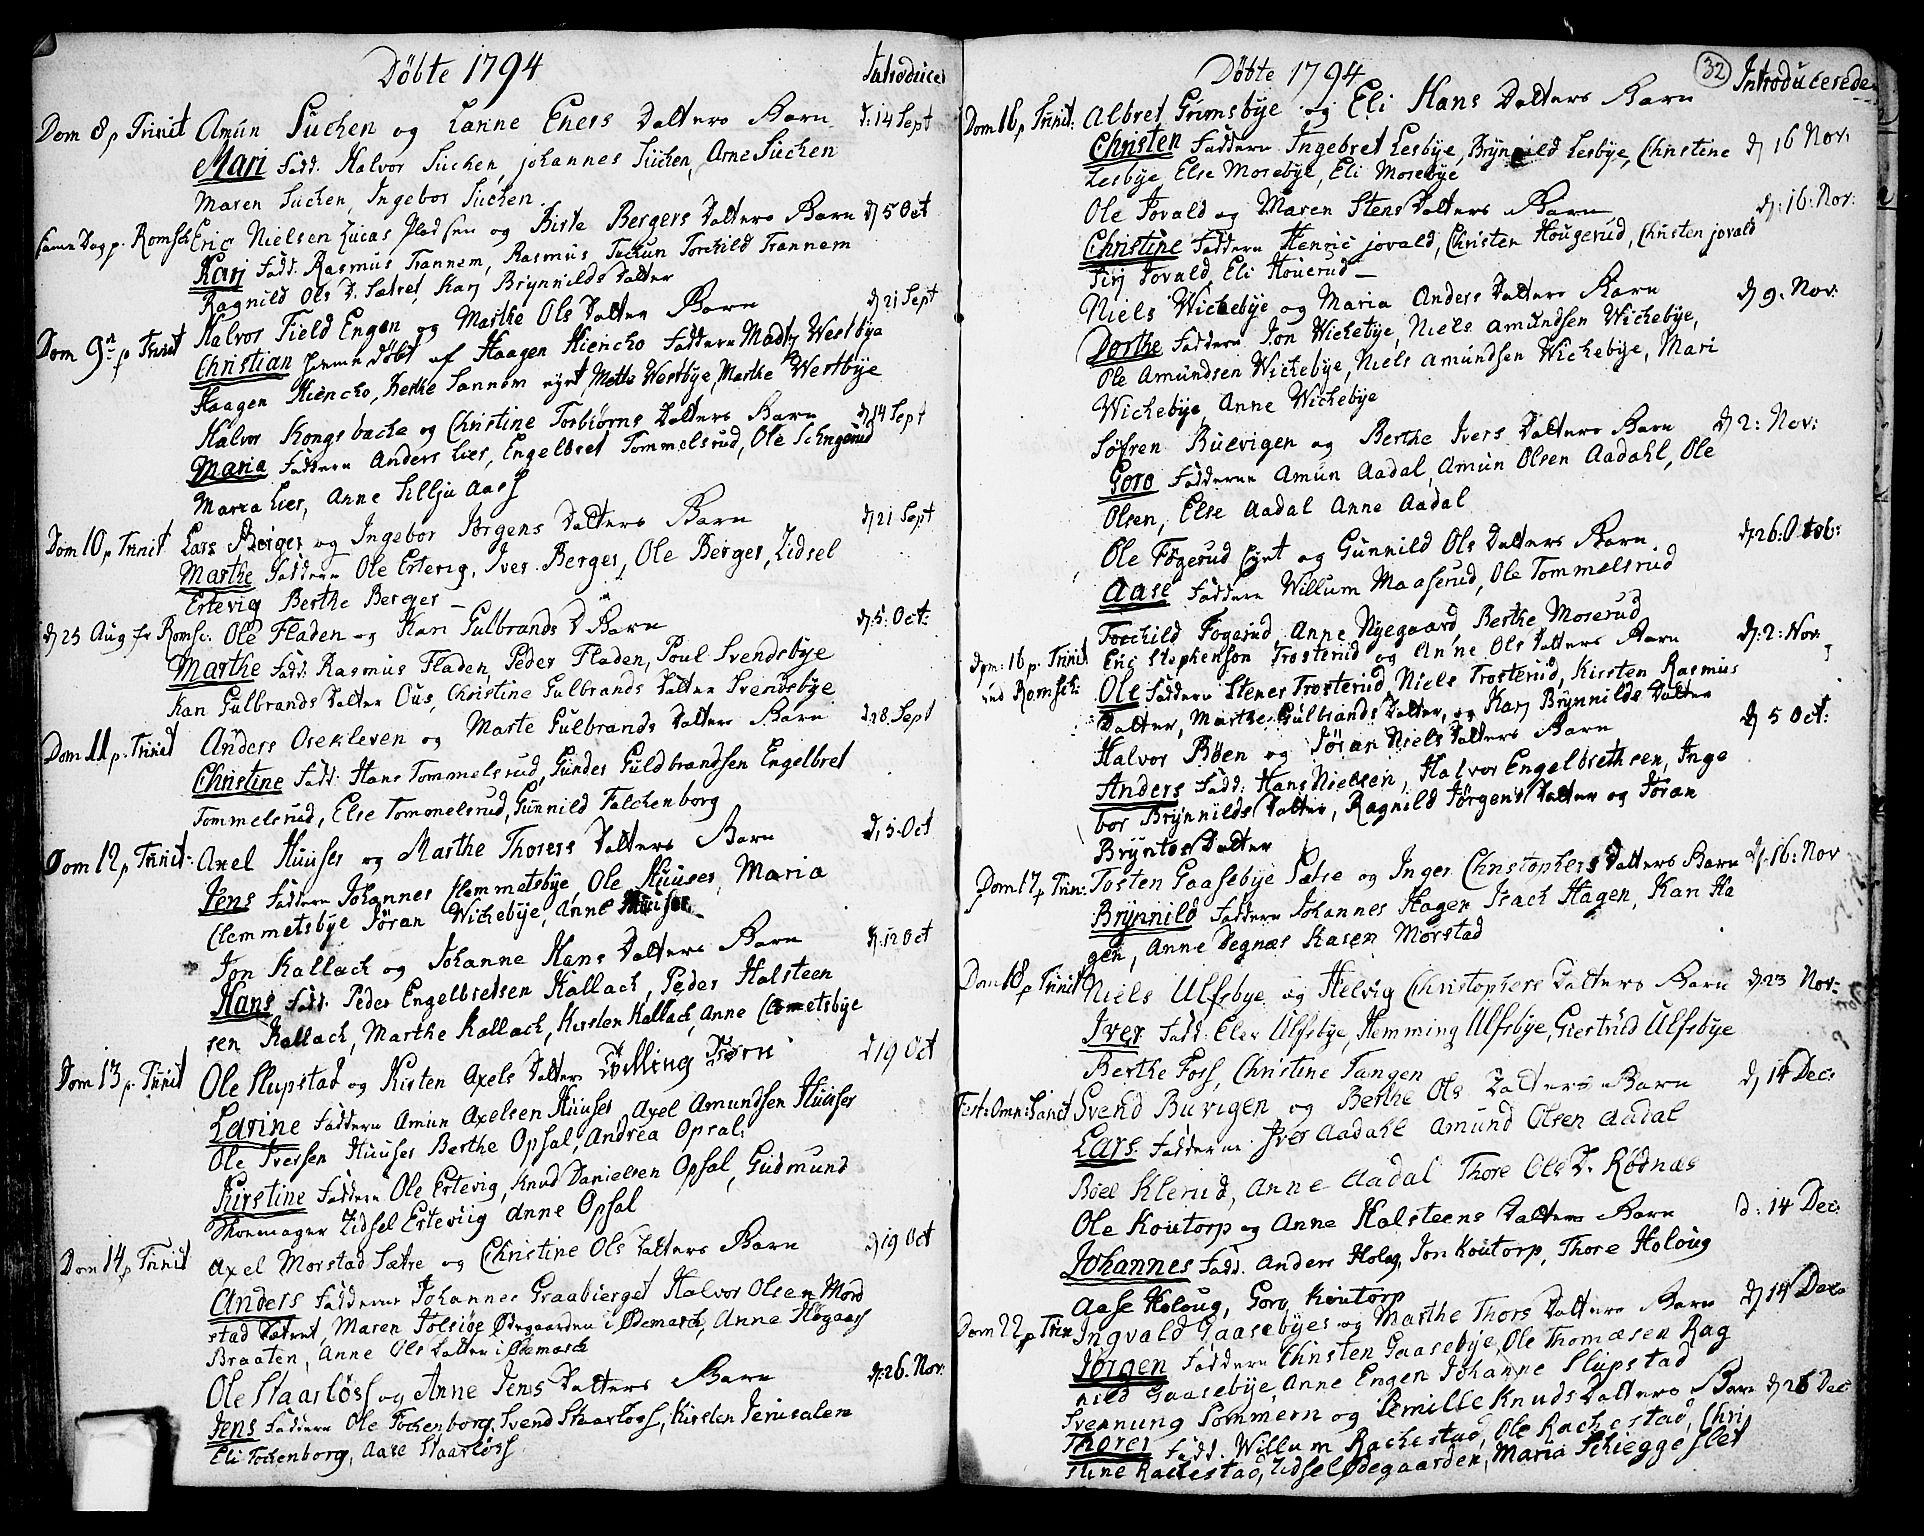 Döbte 1794
Introduces
Dom 8 p Trinit Amün Süchen og Larine Eners Datters Barn d: 14 Sept
Mari Fadd. Halvor Süchen, johannes Süchen, Arne Süchen
Maren Süchen, Ingebor Süchen
samme Dag p. Romsch Eric Nielsen Lucas Pladsen og Birte Bergers Datters Barn d 5 Oct
Karj Fadd. Rasmus Trannem, Rasmus Tuchun Torchild Trannem
Ragnild Ols D. Sætret, Karj Brynnilds Datter
Dom 9 p Trinit Halvor Field Engen og Marthe Ols Datter Barn d 21 Sept
Christian hjemme döbt af Haagen Kiencho Faddere Madtz Westbye
Haagen Kiencho, Berthe Sannem eyet, Mette Westbye, Marthe Westbye
Halvor Kongsbache og Christine Torbiörns Datters Barn d 14 Sept
Maria Faddere Anders Lier, Engelbret Tommelsrud, Ole Schngerud
Maria Lier, Anne Sillju Aass
Dom 10 p Trinit Lars Berger og Ingebor Jörgens Datters Barn d 21 Sept
Marthe Faddere Ole Ertevig, Iver Berger, Ole Berger, Zidsel
Ertevig Berthe Berger
d 25 Aug fr Romsc: Ole Fladen og Kari Gulbrands D Barn d: 5: Oct:
Marthe Fadd: Rasmus Fladen, Peder Fladen, Poul Svendsbye
Kari Gulbrands Datter Ous, Christine Gulbrands Datter Svendsbye
Dom 11 p. Trinit Anders Orekleven og Marte Gulbrands Datter Barn d: 28 Sept
Christine Fadd: Hans Tommelsrud, Gunder Guldbrandsen Engelbret
Tommelsrud, Else Tommelsrud, Gunnild Falchenborg
Dom 12 p Trinit: Axel Huuser og Marthe Thorers Datters Barn d, 5. Oct
Jens Faddere Johannes Clemmetsbye, Ole Huuser, Maria
Clemmetsbye Jöran Wichebye, Anne Huuser
Jon Kallach og Johanne Hans Datters Barn d: 12 Oct
Hans Fadd: Peder Engelbretsen Kallach, Peder Halsteen
sen Kallach, Marthe Kallach, Kirsten Kallach, Anne Clemetsbye
Dom 13 p. Trinit Ole Slupstad og Kirsten Axels Datter Tvilling Börn d 19 Oct
Larine Faddere Amün Axelsen Huuser Axel Amundsen Huuser
Ole Iversen Huuser Berthe Opsal, Andrea Opsal.
Kirstine Faddere Ole Ertevig, Knud Danielsen Opsal, Gudmund
Skoemager Zidsel Erteviig Anne Opsal
Dom 14 p Trinit Axel Morstad Sætre og Christine Ols Datters Barn d 19 Oct
Anders Faddere Johannes Graabierget Halvor Olsen Mord
stad Sætret, Maren Tolsiöe Ödegaarden i Ödemarck, Anne Högaas
Braaten, Anne Ols Datter i Ödemarck
Ole Staarlöss og Anne Jens Datters Barn d: 26. Nov.
Jens Faddere Ole Tochenborg, Svend Staarloss, Kirsten Jerusalem
Eli Tochenborg, Aase Staarlöss
Döbte 1794
32
Introducerede
Dom 16 p Trinit: Albret Grimsbye og Eli Hans Datters Barn
Christen Faddere Ingebret Lesbye, Brynild Lesbye, Christine d 16 Nov:
Lesbye Else Morebye, Eli Morebye
Ole Jovald og Maren Stens Datters Barn d: 16: Nov:
Christine Faddere Henric jovald, Christen Hougerud, Christen jovald
Siri Jovald, Eli Houerud
Niels Wichebye og Maria Anders Datters Barn d 9. Nov:
Dorthe Faddere Jon Wichebye, Niels Amundsen Wichebye,
Ole Amundsen Wichebye, Niels Amundsen Wichebye, Mari
Wichebye Anne Wichebye
Söfren Buevigen og Berthe Ivers Datters Barn d 2: Nov:
Goro Faddere Amün Aadal, Amün Olsen Aadahl, Ole
Olsen, Else Aadal Anne Aadal
Ole Fögerud Eyet og Gunnild Ols Datters Barn d: 26: Octob:
Aase Faddere Willum Maaserud, Ole Tommelsrud
Torchild Fogerud, Anne Nyegaard, Berthe Moserud
Dom: 16 p. Trinit ved Romsch: Eric Stephenson Trosterud og Anne Ols Datters Barn d: 2: Nov:
Ole Faddere Stener Trosterud Niels Trosterud, Kirsten Rasmus
Datter, Marthe Gulbrands Datter, og Karj Brynnilds Datter
Halvor Böen og Jöran Niels Datters Barn d 5 Oct:
Anders Fadd: Hans Nielsen, Halvor Engelbrethsen, Inge
bor Brynnilds Datter, Ragnild Jörgens Datter og Joran
Bryntes Datter
Dom 17 p Trin: Tosten Gaasebye Sætre og Inger Christophers Datters Barn d. 16: Nov
Brynnild Faddere Johannes Hagen Isach Hagen, Kari Ha
gen, Anne Degnæs Karen Morstad
Dom 18 p Trinit Niels Ulfsbye og Helvig Christophers Datters Barn d: 23 Nov:
Iver Fadd: Elev Ulfsbye, Hemming Ulfsbye, Giertrud Ulfsbye
Berthe Foss, Christine Tangen
Fest: Omn: Sanct Svend Burigen og Berthe Ols Datters Barn d 14 Dec:
Lars Faddere Iver Aadahl Amund Olsen Aadal
Böel Klerud, Anne Aadal Thore Ols D. Rödnæs
Ole Koutorp og Anne Halsteens Datters Barn d: 14 Dec:
Johannes Fadd. Anders Holog, Jon Koutorp, Thore Holoug
Aase Holoug, Goro Koutorp
Dom 22 p Trin Ingvald Gaasebyes og Marthe Thors Datters Barn d 14 Dec
Jörgen Faddere Christen Gaasebye, Ole Thomæsen Rag
nild Gaasebye, Anne Engen Johanne Slupstad
Svennung Sommern og Pernille Knuds Datters Barn d 26 Dec
Thorer Fadd. Willum Rachestad, Ole Rachestad, Chri
stine Rachestad, Zidsel Ödegaarden, Maria Schieggesslet